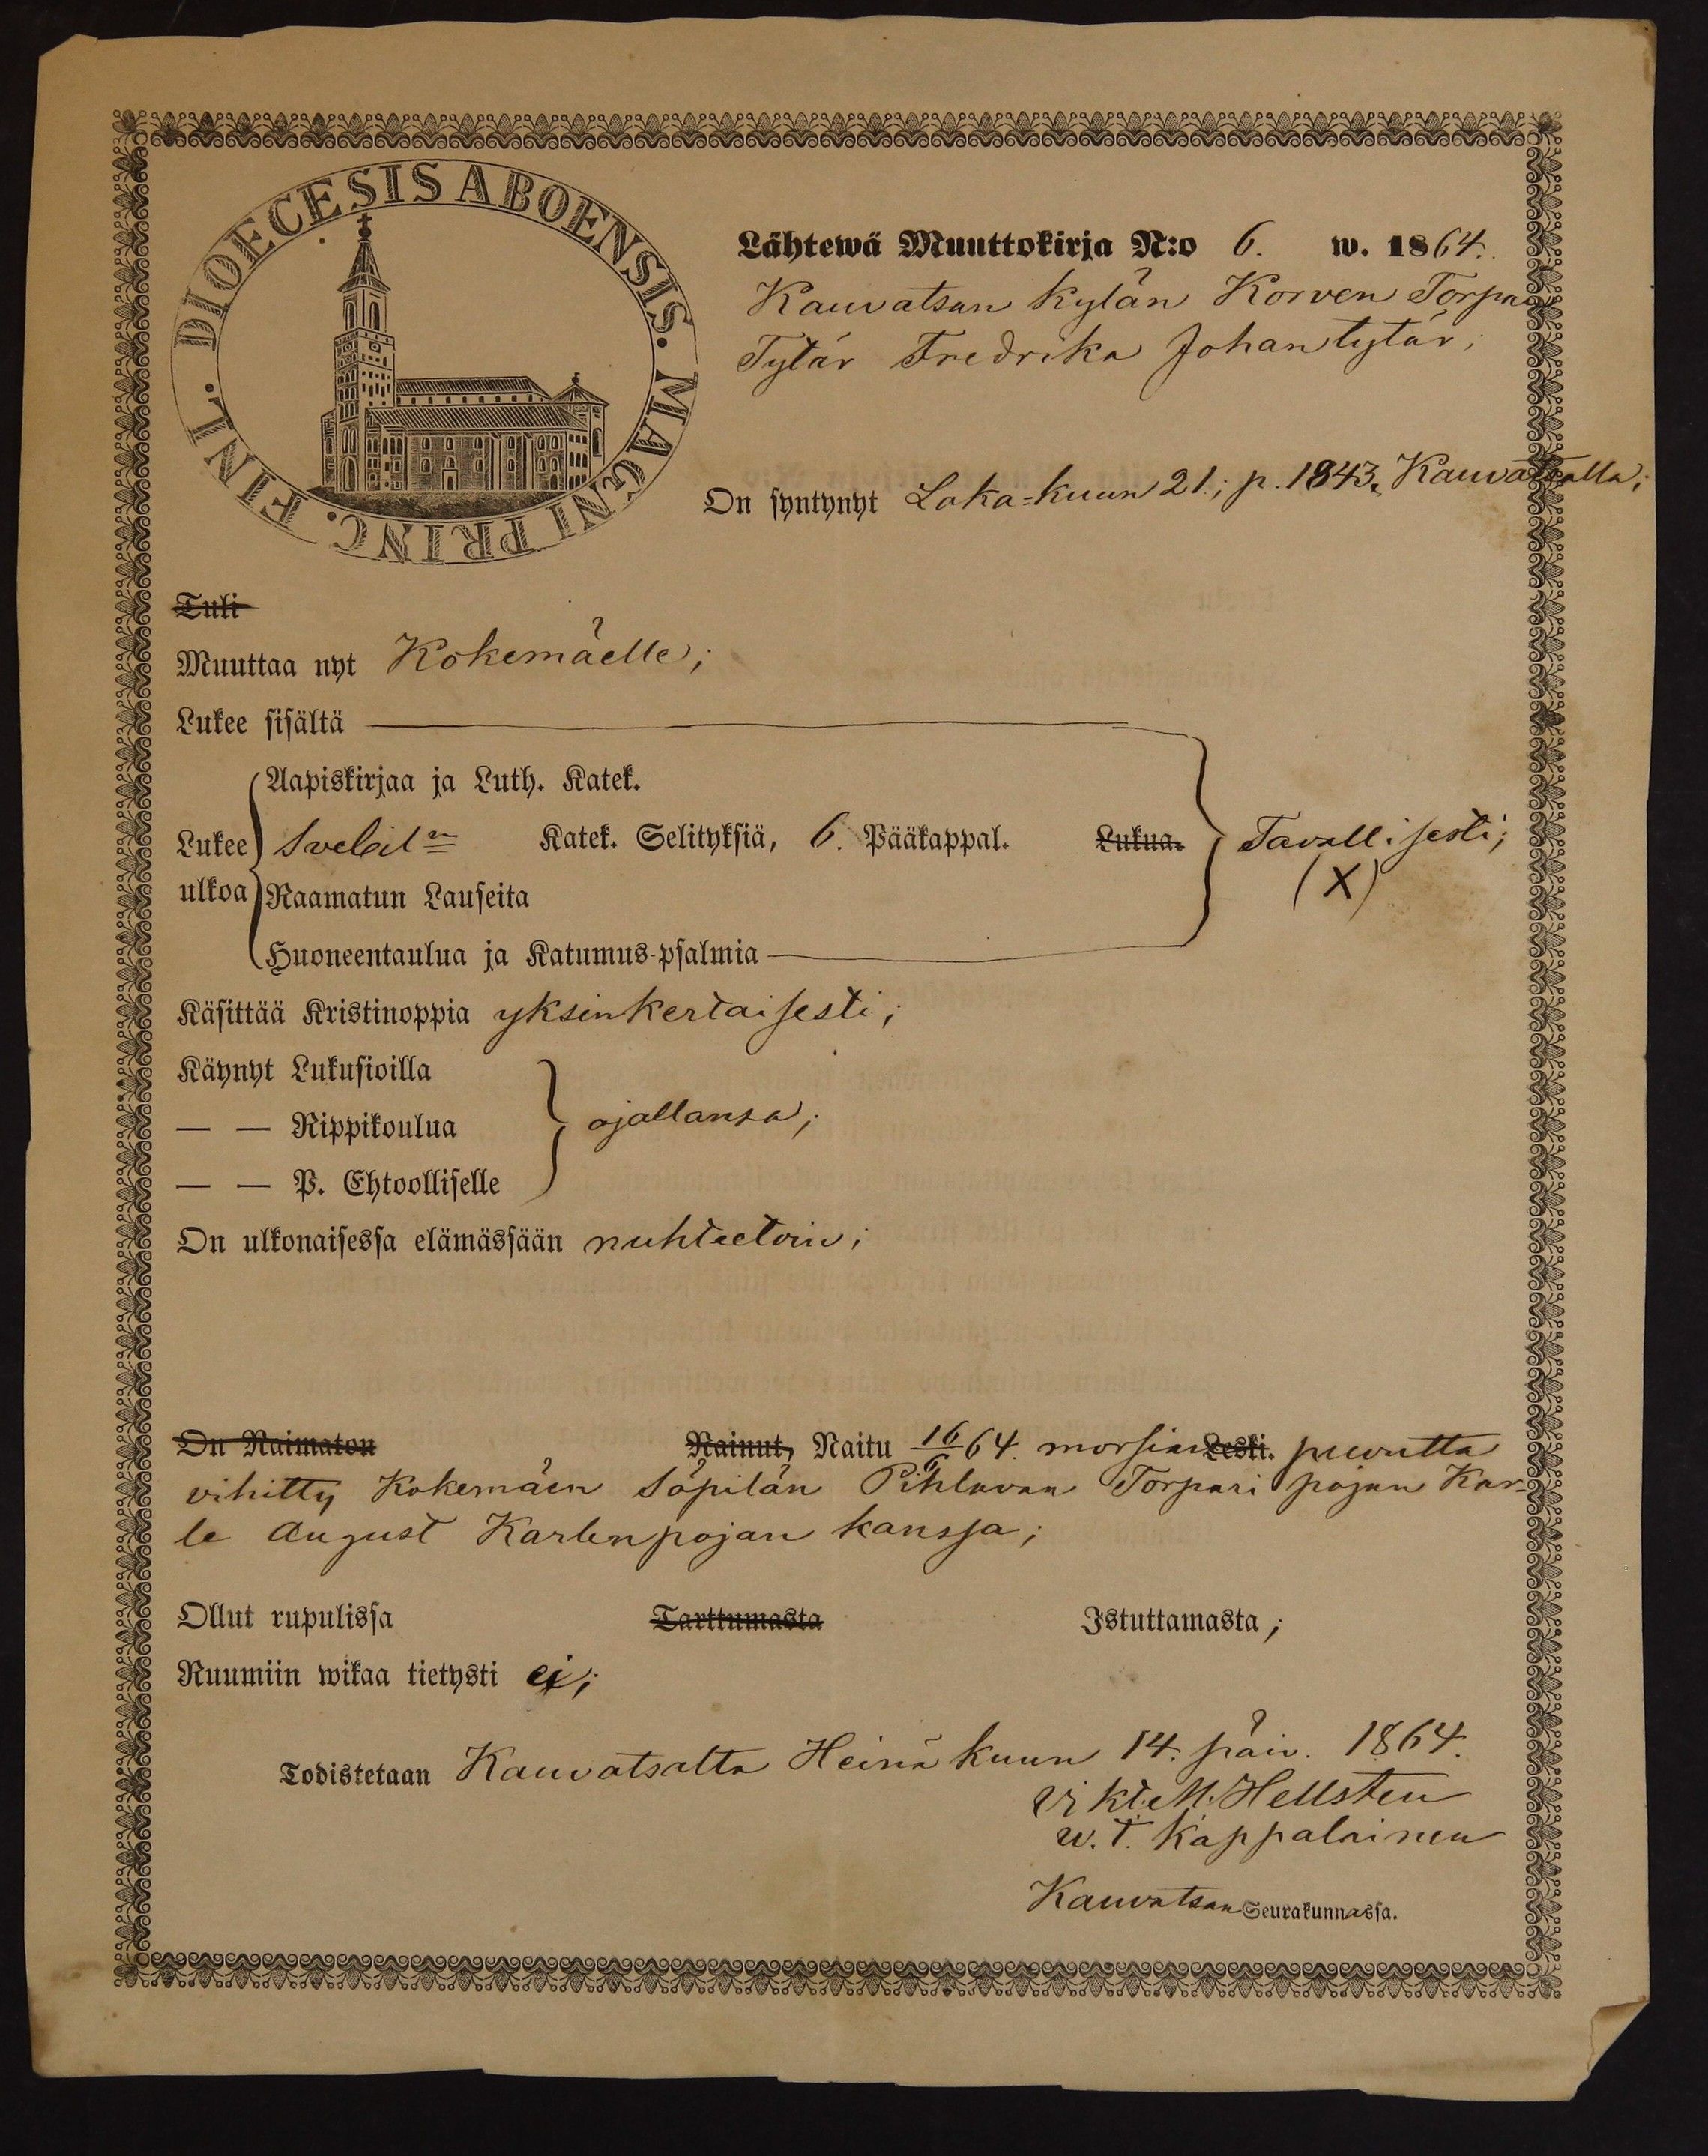 DIOECESIS ABOENSIS. MAGNI PRINC. FINL.
Lähtewä Muuttokirja N:o 6. w. 1864.
Kauvatsan kylän Korven Torpan
Tytär Fredrika Johantytär;
On syntynyt Loka=kuun 21; p. 1843, Kauvatsalla;
Tuli
Muuttaa nyt Kokemäelle;
Lukee sisältä
Aapiskirjaa ja Luth. Katek.
Lukee Svebil Katek. Selityksiä, 6. Pääkappal. Lukua. Tavallisesti;
ulkoa Raamatun Lauseita (X)
Huoneentaulua ja Katumus-psalmia
Käsittää Kristinoppia yksinkertaisesti;
Käynyt Lukusioilla
— — Rippikoulua ajallansa;
— — P. Ehtoolliselle
On ulkonaisessa elämässään nuhteetoin;
On Naimaton Nainut, Naitu 16/6 64. morsian Leski. puvutta
vihitty Kokemäen Säpilän Pihlavan Torpari pojan Kar-
le August Karlenpojan kanssa;
Ollut rupulissa Tarttumasta Istuttamasta;
Ruumiin wikaa tietysti ei;
Todistetaan Kauvatsalta Heinä kuun 14. päiv. 1864.
Vikt. M. Hellsten
w. t. Kappalainen
Kauvatsan Seurakunnassa.